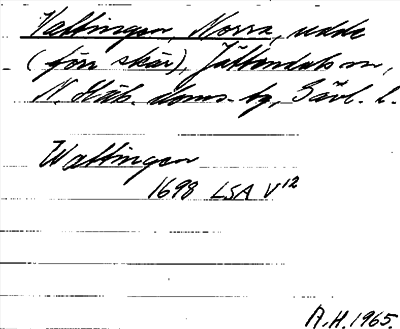 Vattingen, Norra, udde
(förr skär), Jättendals sn,
N. Häls. doms. by, Gävl. l.
Wattingen
1698 LSA V12
A.H. 1965.